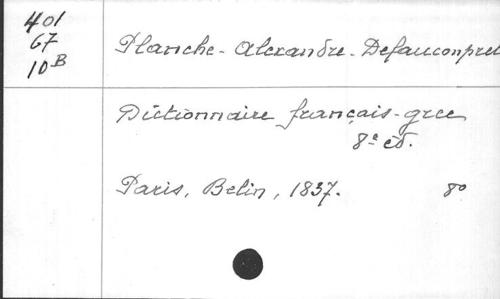 401
67
10B
Planche-Alexandre-Defauconpret
Dictionnaire français-grec
8e éd.
Paris, Belin, 1837. 8o